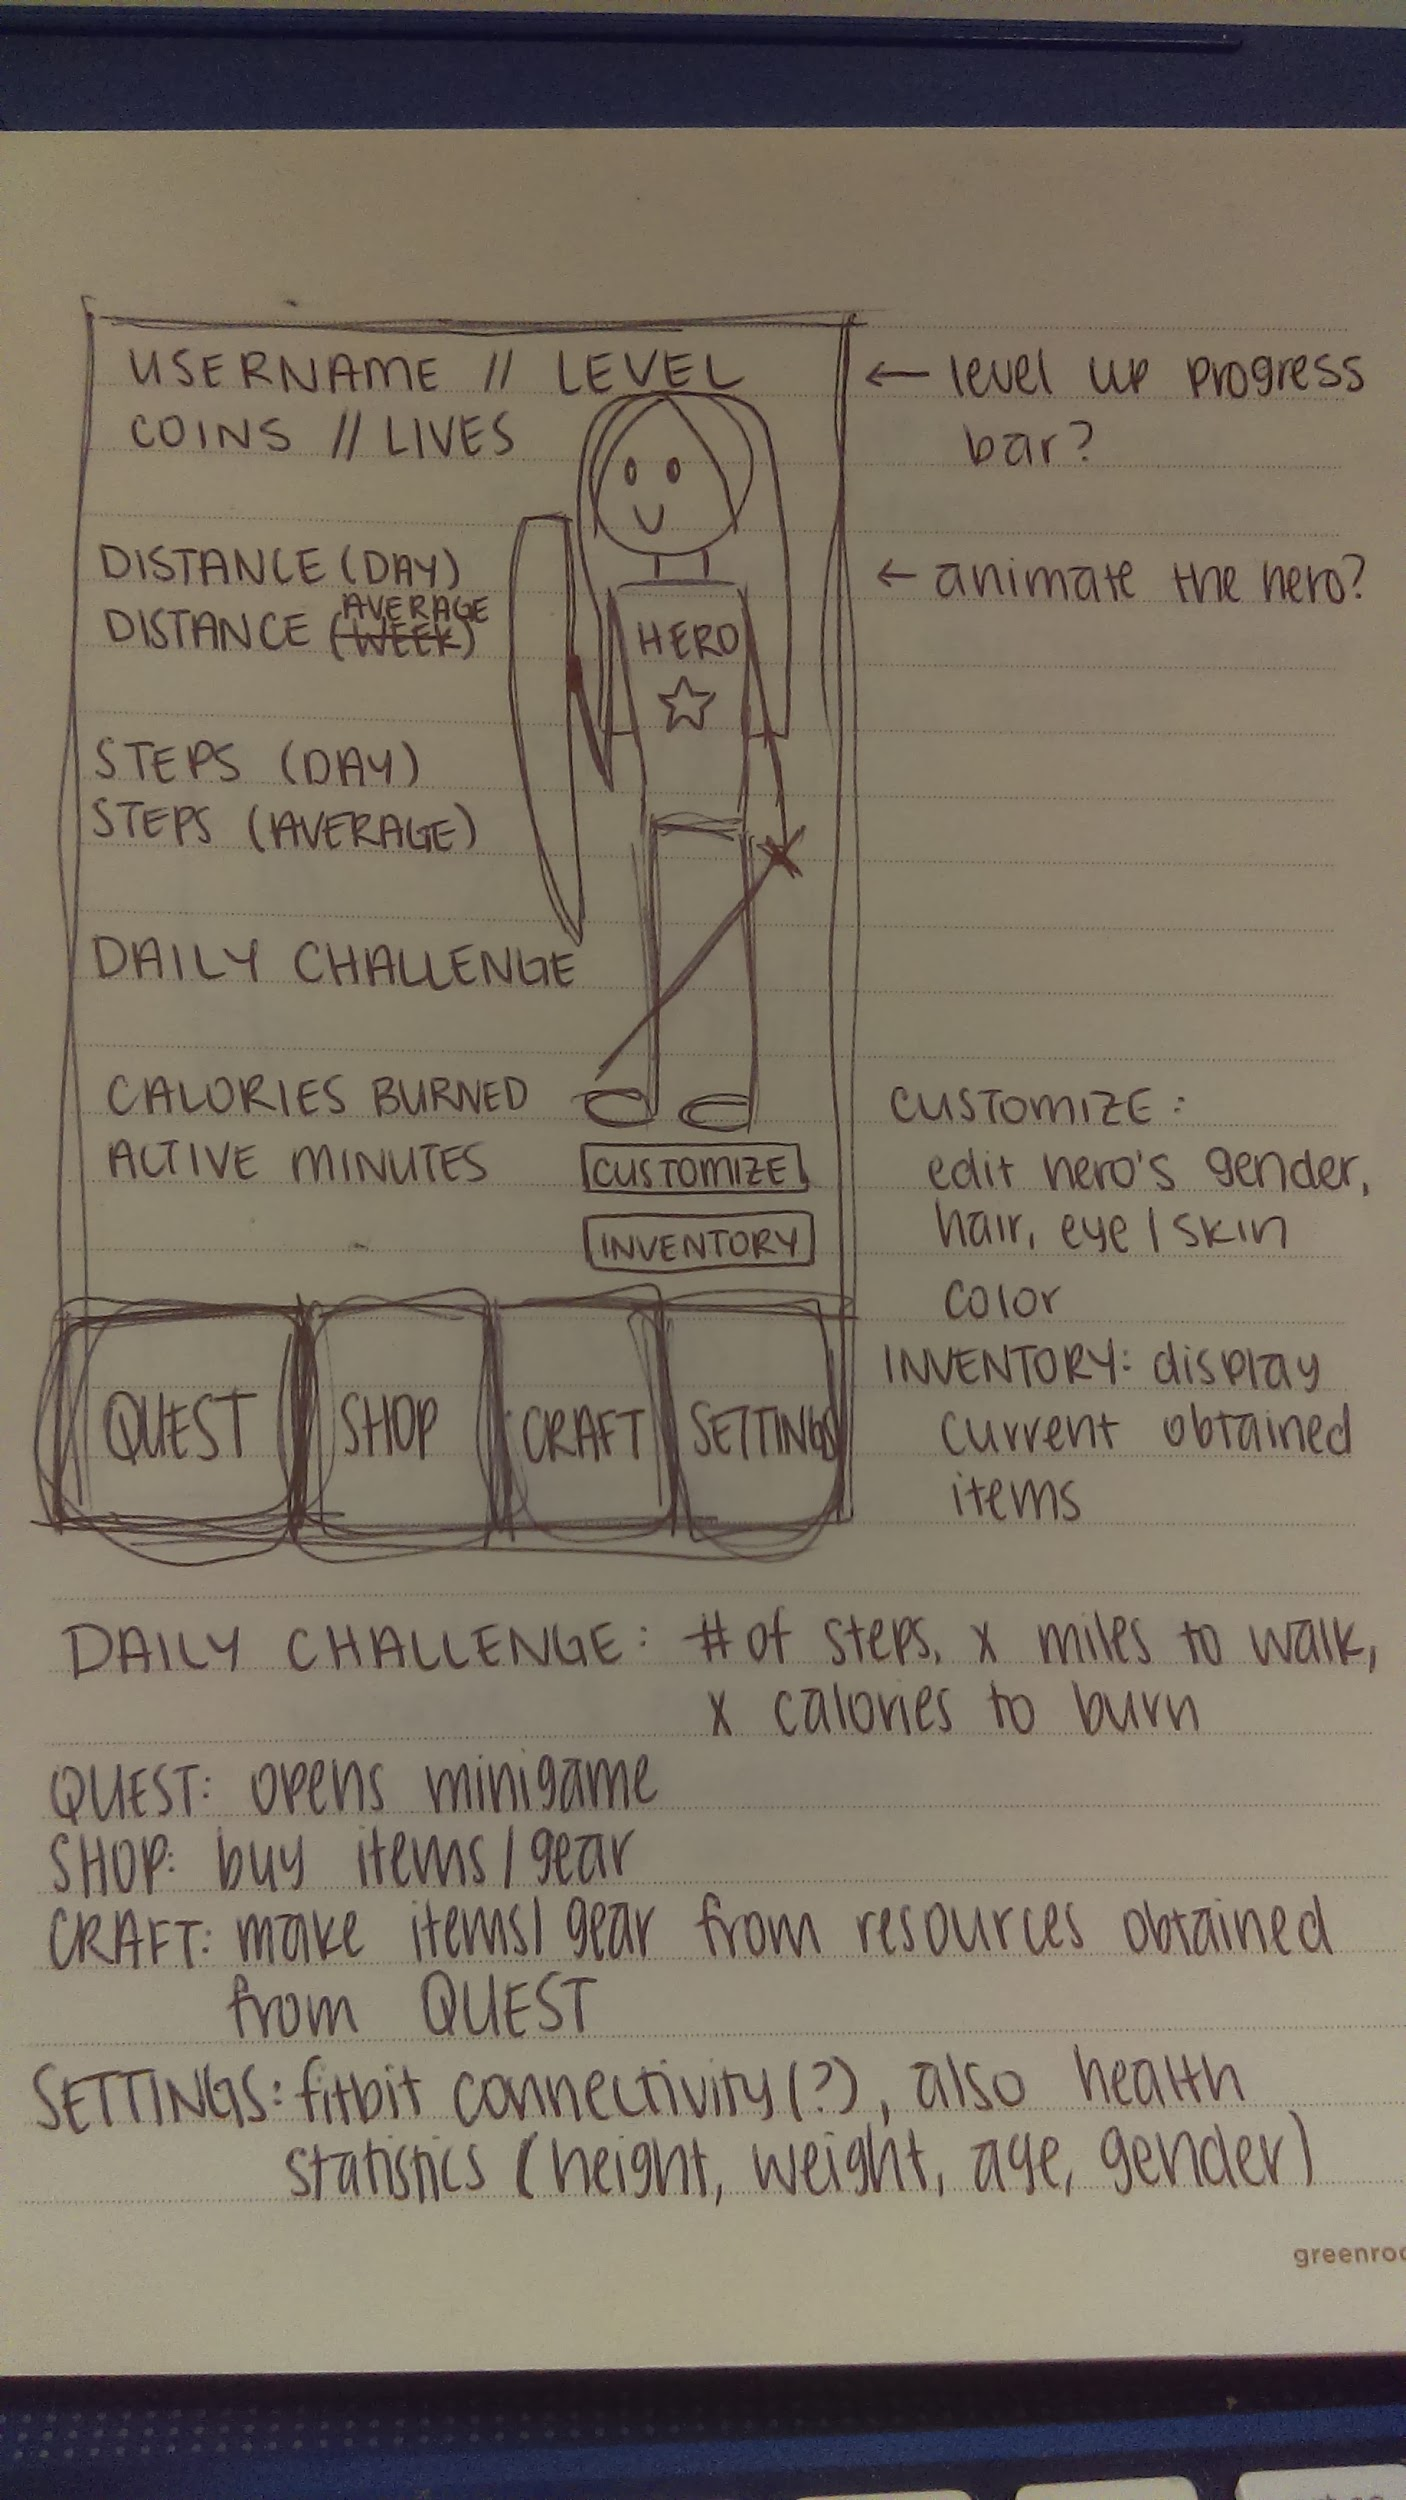 USERNAME // LEVEL
← level up progress
bar?
COINS // LIVES
DISTANCE (DAY)
← animate the hero?
AVERAGE
DISTANCE (WEEK)
HERO
STEPS (DAY)
STEPS (AVERAGE)
DAILY CHALLENGE
CALORIES BURNED
ACTIVE MINUTES
CUSTOMIZE
INVENTORY
CUSTOMIZE:
edit hero's gender,
hair, eye / skin
color
INVENTORY: display
current obtained
items
QUEST
SHOP
CRAFT
SETTINGS
DAILY CHALLENGE: # of steps, x miles to walk,
x calories to burn
QUEST: opens minigame
SHOP: buy items / gear
CRAFT: make items / gear from resources obtained
from QUEST
SETTINGS: fitbit connectivity (?), also health
statistics (height, weight, age, gender)